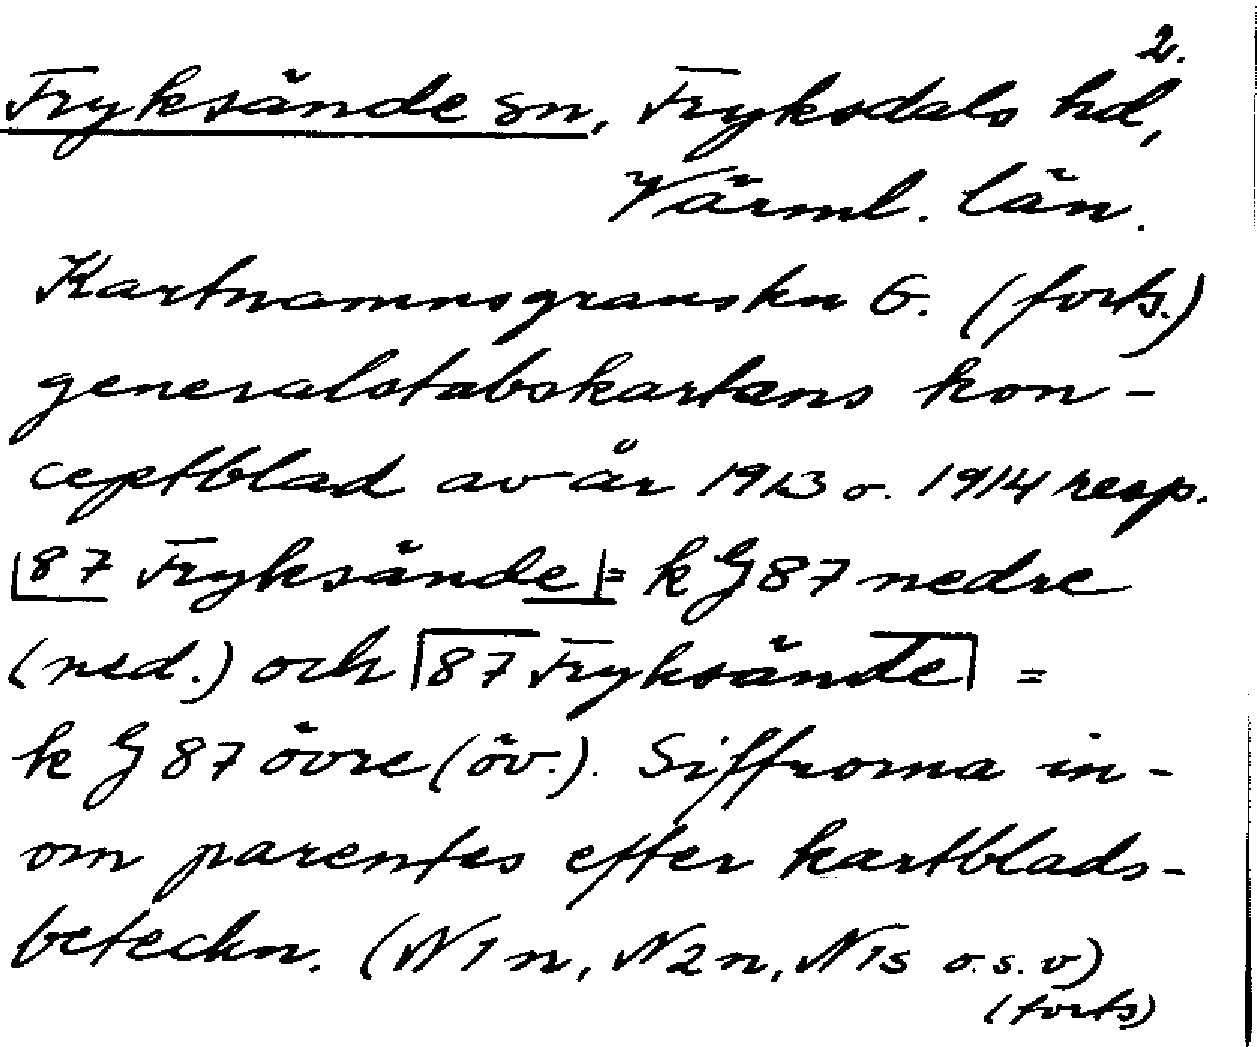 2.
Fryksände sn, Fryksdals hd,
Värml. län.
Kartnamnsgranskn G. (forts.)
generalstabskartans kon-
ceptblad av år 1913 o. 1914 resp.
87 Fryksände = k G 87 nedre
(ned.) och 87 Fryksände =
k G 87 övre (öv.). Siffrorna in-
om parentes efter kartblads-
beteckn. (N1n, N2n, N1s o.s.v)
(forts)